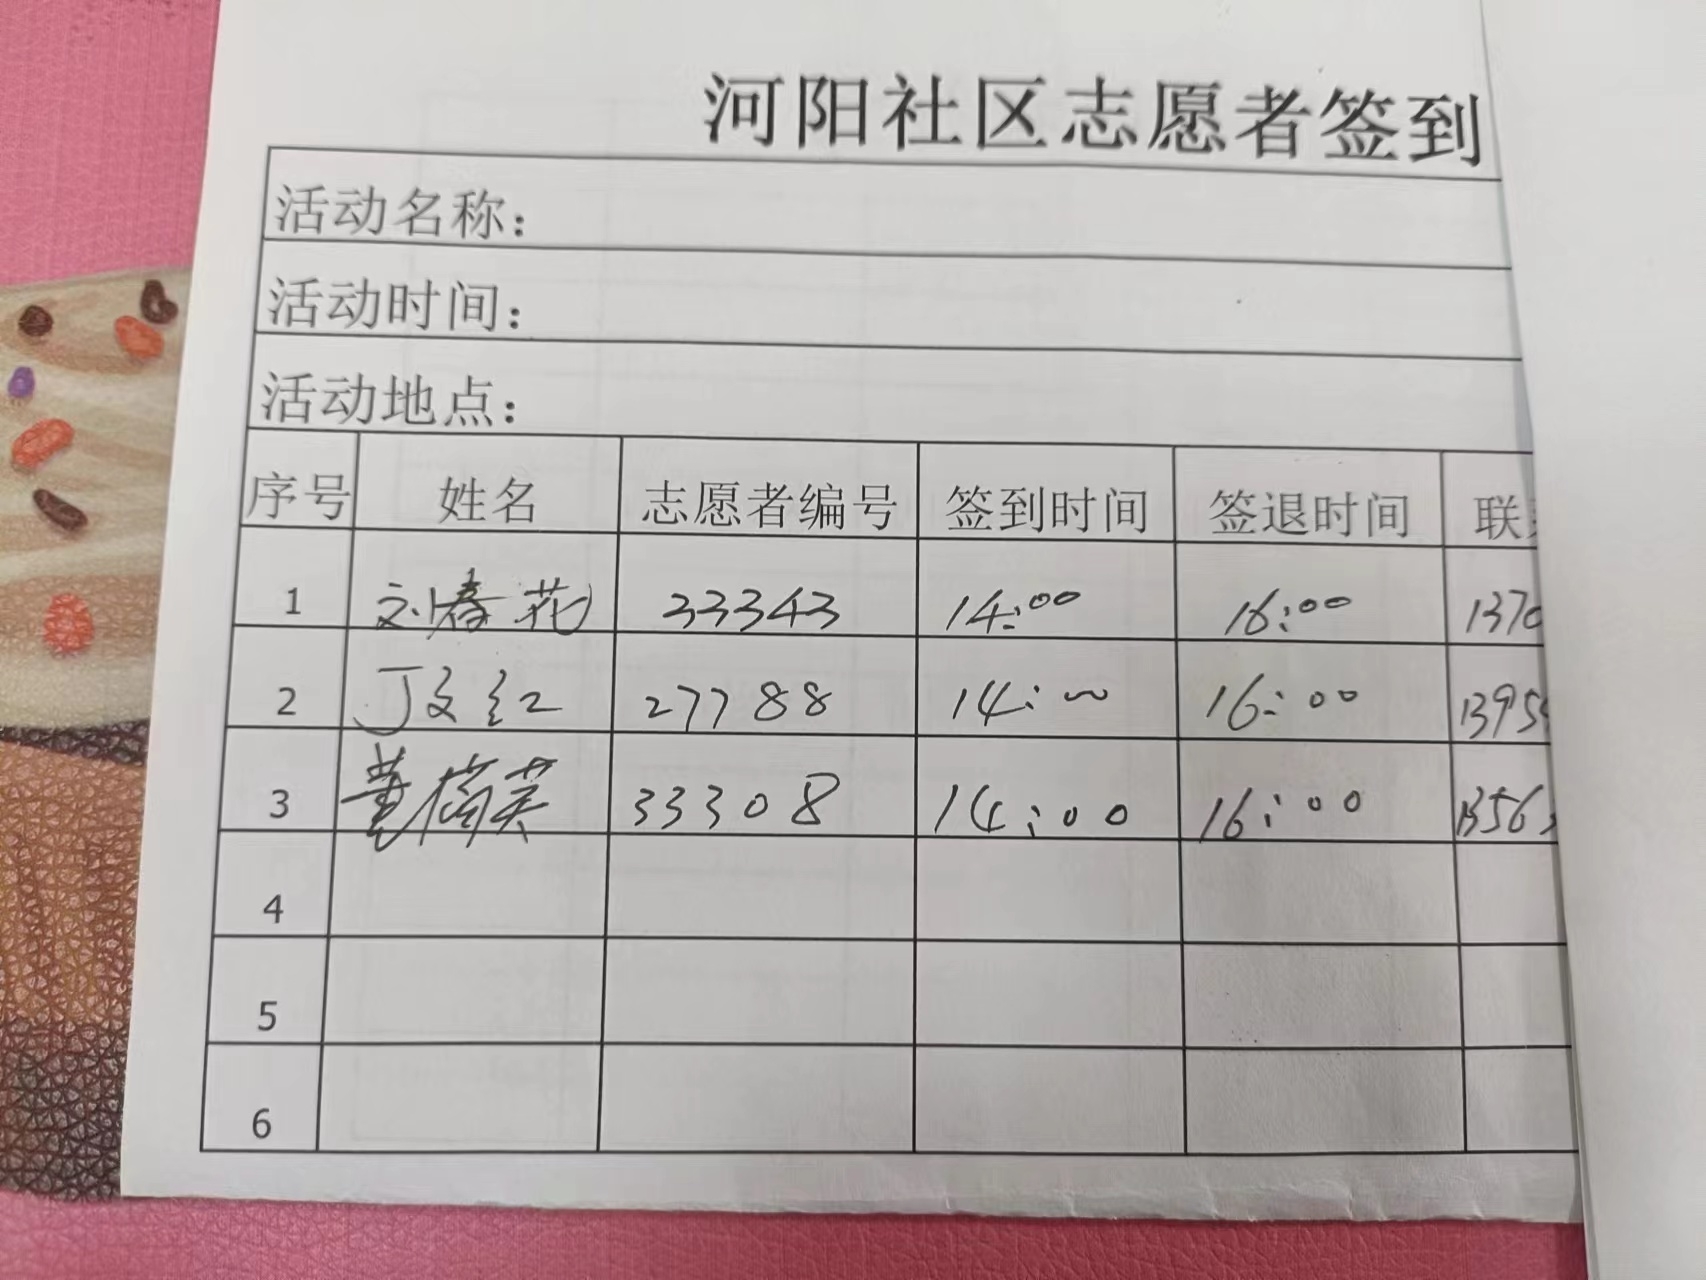 河阳社区志愿者签到
活动名称：
活动时间：
活动地点：
序号 姓名 志愿者编号 签到时间 签退时间 联
1 刘春花 33343 14:00 16:00 1370
2 丁文红 27788 14:00 16:00 1395
3 董 英 33308 14:00 16:00 1356
4
5
6